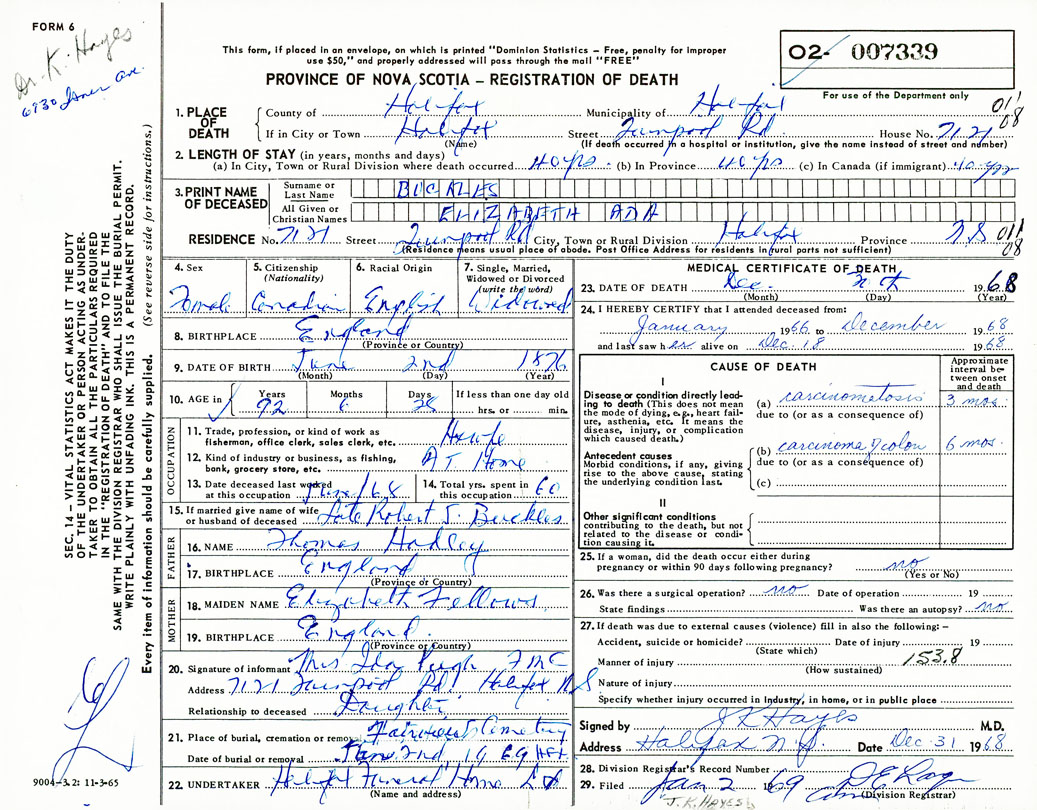 FORM 6
Dr. K. Hayes
6730
This form, if placed in an envelope, on which is printed "Dominion Statistics – Free, penalty for improper
use $50," and properly addressed will pass through the mail "FREE"
PROVINCE OF NOVA SCOTIA – REGISTRATION OF DEATH
02- 007339
For use of the Department only
011
08
1. PLACE OF DEATH
County of Halifax Municipality of Halifax
If in City or Town Halifax Street Rd House No. 7121
(Name) (If death occurred in a hospital or institution, give the name instead of street and number)
2. LENGTH OF STAY (in years, months and days)
(a) In City, Town or Rural Division where death occurred 40 yrs. (b) In Province 40 yrs (c) In Canada (if immigrant) 40 yrs
3. PRINT NAME OF DECEASED
Surname or Last Name BUCKLES
All Given or Christian Names ELIZABETH ADA
RESIDENCE No. 7121 Street Rd City, Town or Rural Division Halifax Province N.S 011
08
(Residence means usual place of abode. Post Office Address for residents in rural parts not sufficient)
4. Sex
Female
5. Citizenship (Nationality)
Canadian
6. Racial Origin
English
7. Single, Married, Widowed or Divorced (write the word)
Widowed
8. BIRTHPLACE England
(Province or Country)
9. DATE OF BIRTH June 2nd 1876
(Month) (Day) (Year)
10. AGE in Years Months Days If less than one day old
92 6 28 hrs. or min.
OCCUPATION
11. Trade, profession, or kind of work as
fisherman, office clerk, sales clerk, etc. Hswfe
12. Kind of industry or business, as fishing,
bank, grocery store, etc. AT Home
13. Date deceased last worked
at this occupation June/68
14. Total yrs. spent in
this occupation 60
15. If married give name of wife
or husband of deceased Late Robert J. Buckles
FATHER
16. NAME Thomas Hadley
17. BIRTHPLACE England
(Province or Country)
MOTHER
18. MAIDEN NAME Elizabeth Fellows
19. BIRTHPLACE England
(Province or Country)
20. Signature of informant Mrs Ida Pugh
Address 7121 Rd. Halifax N S
Relationship to deceased Daughter
21. Place of burial, cremation or removal Fairview Cemetery
Date of burial or removal Jan. 2nd, 1969 Hfx
22. UNDERTAKER Halifax Funeral Home Ltd
(Name and address)
MEDICAL CERTIFICATE OF DEATH
23. DATE OF DEATH Dec. 1968
(Month) (Day) (Year)
24. I HEREBY CERTIFY that I attended deceased from:
January 1966 to December 1968
and last saw her alive on Dec. 18 1968
CAUSE OF DEATH
Approximate interval between onset and death
I
Disease or condition directly leading to death (This does not mean the mode of dying, e.g., heart failure, asthenia, etc. It means the disease, injury, or complication which caused death.)
(a) carcinomatosis 3 mos.
due to (or as a consequence of)
Antecedent causes
Morbid conditions, if any, giving rise to the above cause, stating the underlying condition last.
(b) carcinoma of colon 6 mos.
due to (or as a consequence of)
(c)
II
Other significant conditions
contributing to the death, but not related to the disease or condition causing it.
25. If a woman, did the death occur either during
pregnancy or within 90 days following pregnancy? no
(Yes or No)
26. Was there a surgical operation? no Date of operation 19
State findings Was there an autopsy? no
27. If death was due to external causes (violence) fill in also the following: –
Accident, suicide or homicide? Date of injury 19
(State which)
Manner of injury 153.8
(How sustained)
Nature of injury
Specify whether injury occurred in Industry, in home, or in public place
Signed by J K Hayes M.D.
Address Halifax N.S. Date Dec 31 1968
28. Division Registrar's Record Number
29. Filed Jan 2 1969
(Division Registrar)
J. K. HAYES
SEC. 14 – VITAL STATISTICS ACT MAKES IT THE DUTY
OF THE UNDERTAKER OR PERSON ACTING AS UNDER-
TAKER TO OBTAIN ALL THE PARTICULARS REQUIRED
IN THE "REGISTRATION OF DEATH" AND TO FILE THE
SAME WITH THE DIVISION REGISTRAR WHO SHALL ISSUE THE BURIAL PERMIT.
WRITE PLAINLY WITH UNFADING INK. THIS IS A PERMANENT RECORD.
Every item of information should be carefully supplied. (See reverse side for instructions.)
9004-3.2: 11-3-65